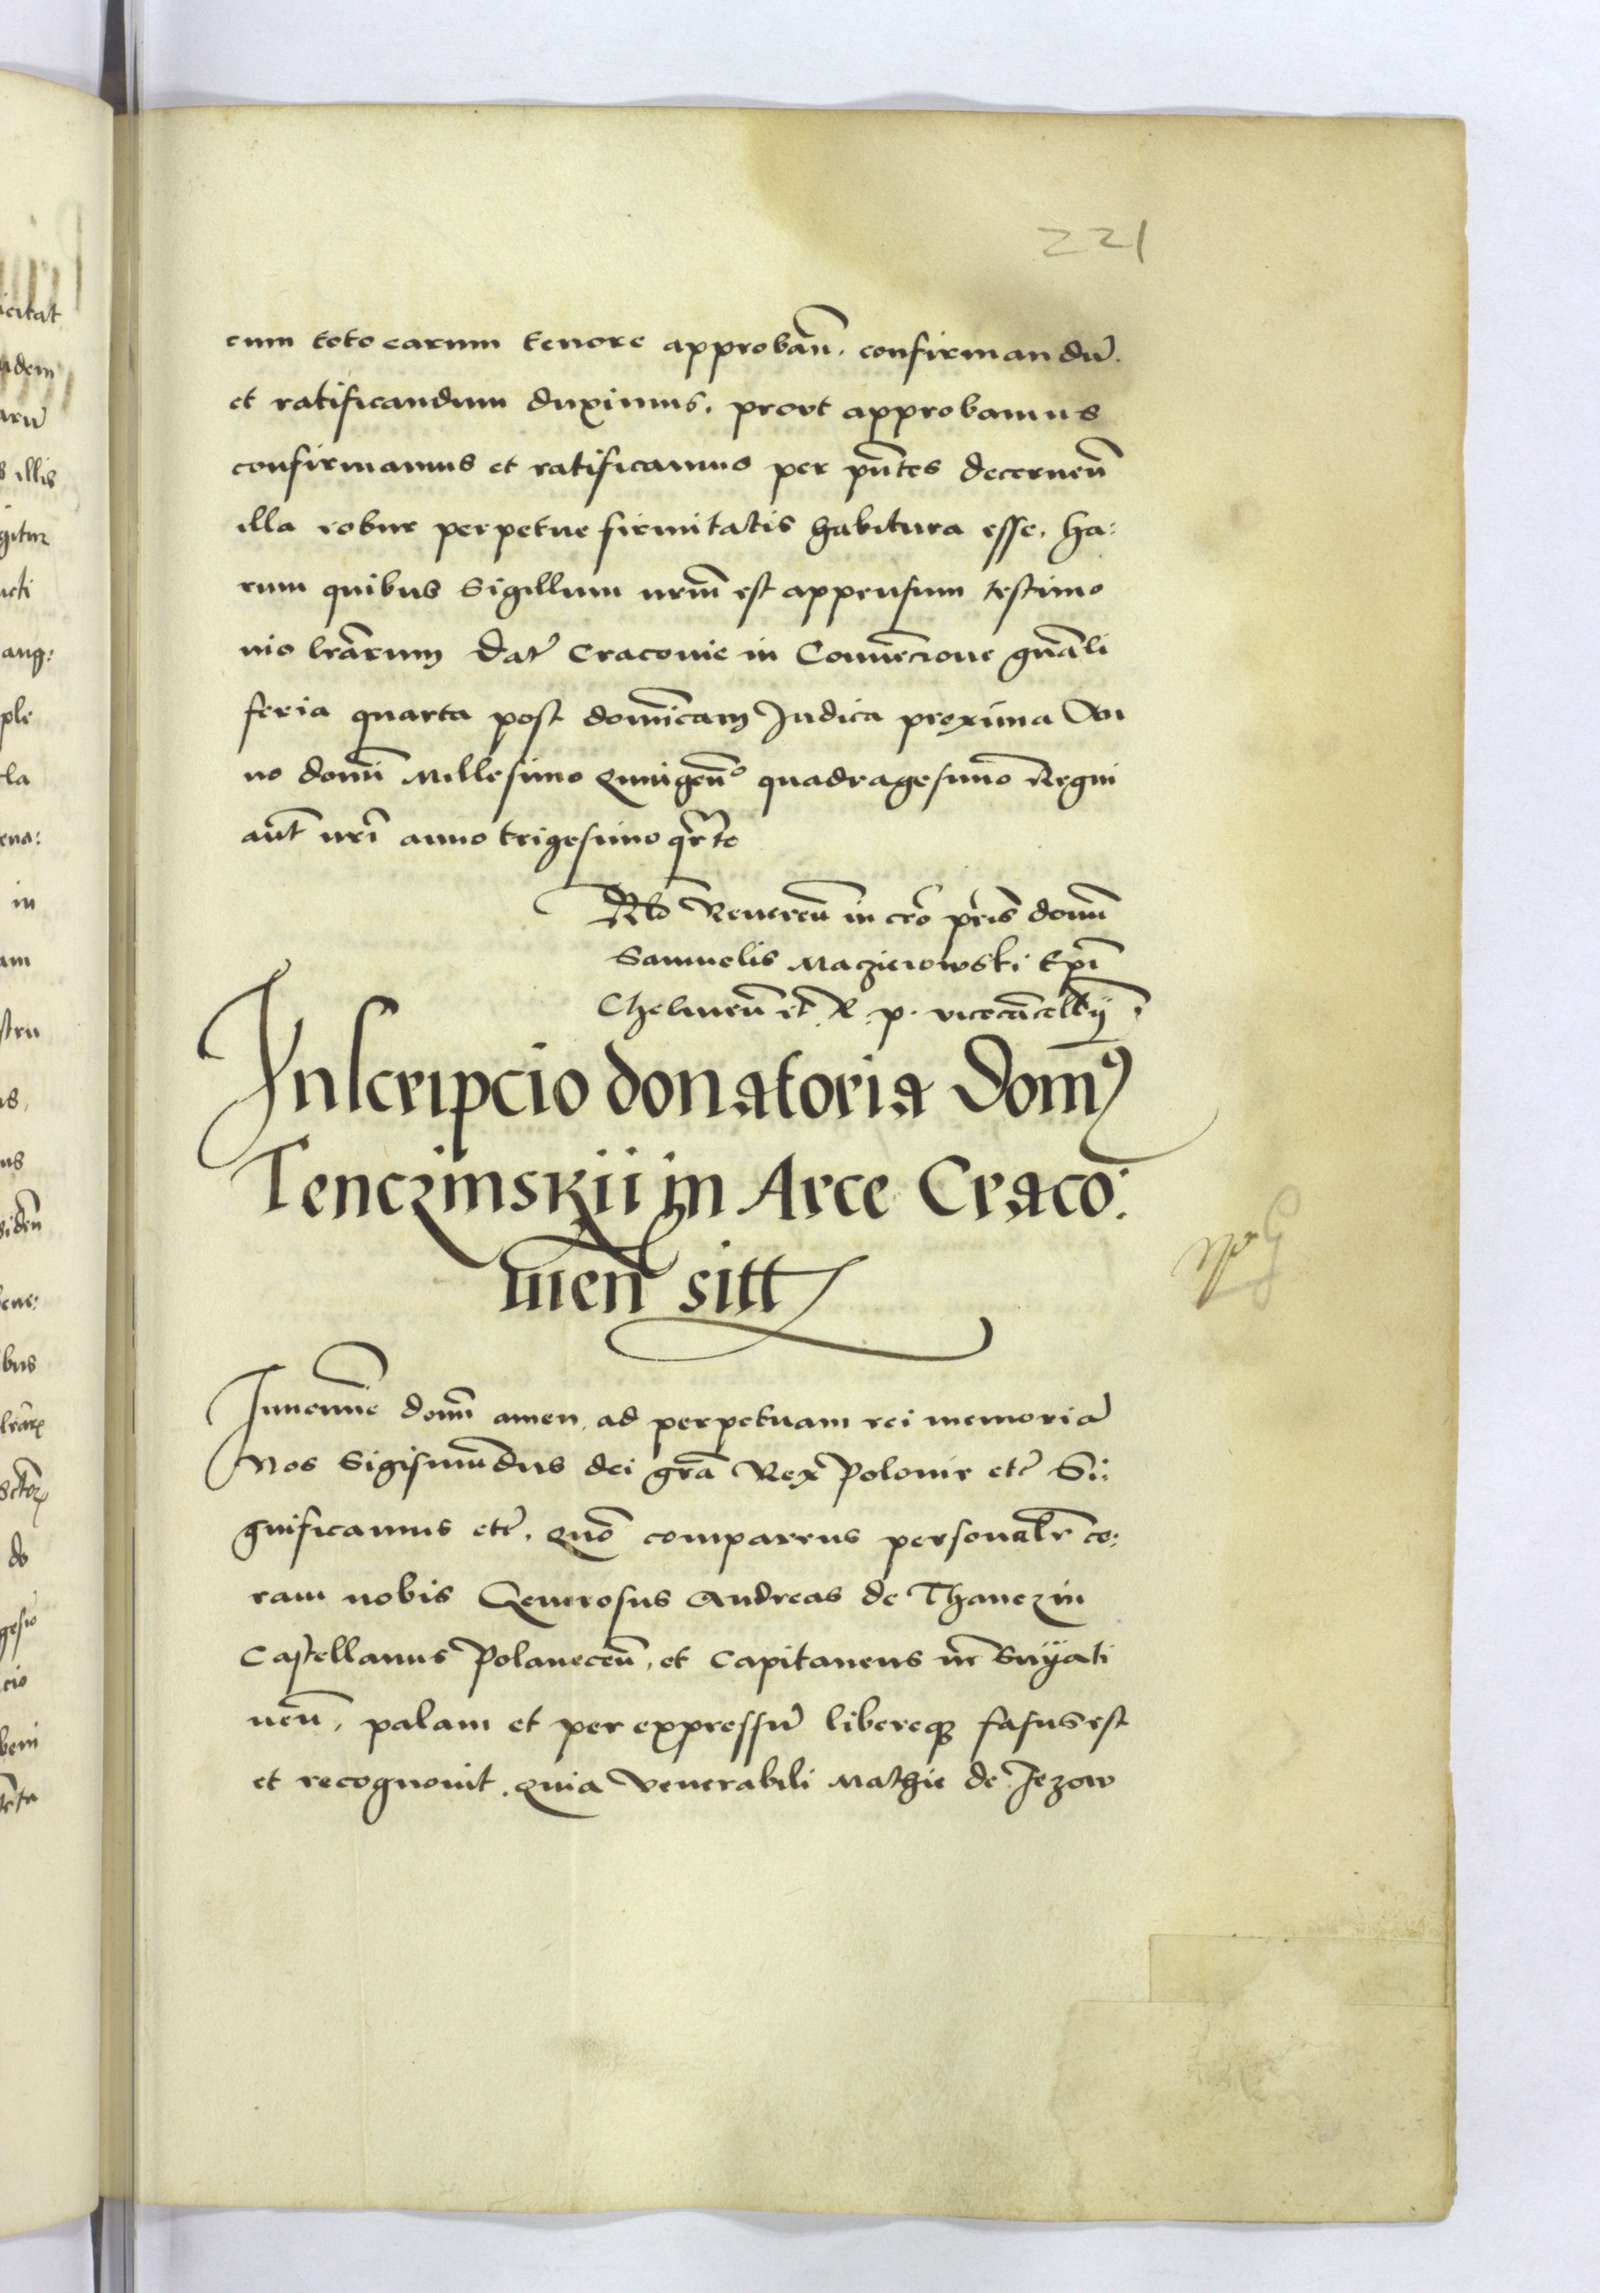 221
cum toto earum tenore approbañ. confirmandũ.
et ratificandum duximus, prout approbamus
confirmamus et ratificamus per pñtes decerneñ
illa robur perpetue firmitatis habitura esse. ha:
rum quibus Sigillum nrm̃ est appensum testimo
nio lrãrum Dat̃ Cracovie in Convẽcione gnãli
feria quarta post domĩcam Judica proxima An
no domĩ Millesimo Quingeñº quadragesimo Regni
aũt nrĩ anno trigesimo qrto
Rlõ Revereñ in cro pris domĩ
Samuelis Maczieiowski Epĩ
Chelmeñ et R. p. vicecãcellrij
Inscripcio donatoria Domus
Tenczinskii in Arce Craco:
vien̄ sitt
In noñie domĩ amen. ad perpetuam rei memoriã
Nos Sigismũdus dei grã Rex Polonie etc̃ Si:
gnificamus etc̃. Quõ comparens personalr̃ co:
ram nobis Generosus Andreas de Thanczin
Castellanus Polaneceñ, et Capitaneus nr̃ Snyati
neñ, palam et per expressũ libereqȝ fassus est
et recognovit. Quia Venerabili Mathie de Jezow